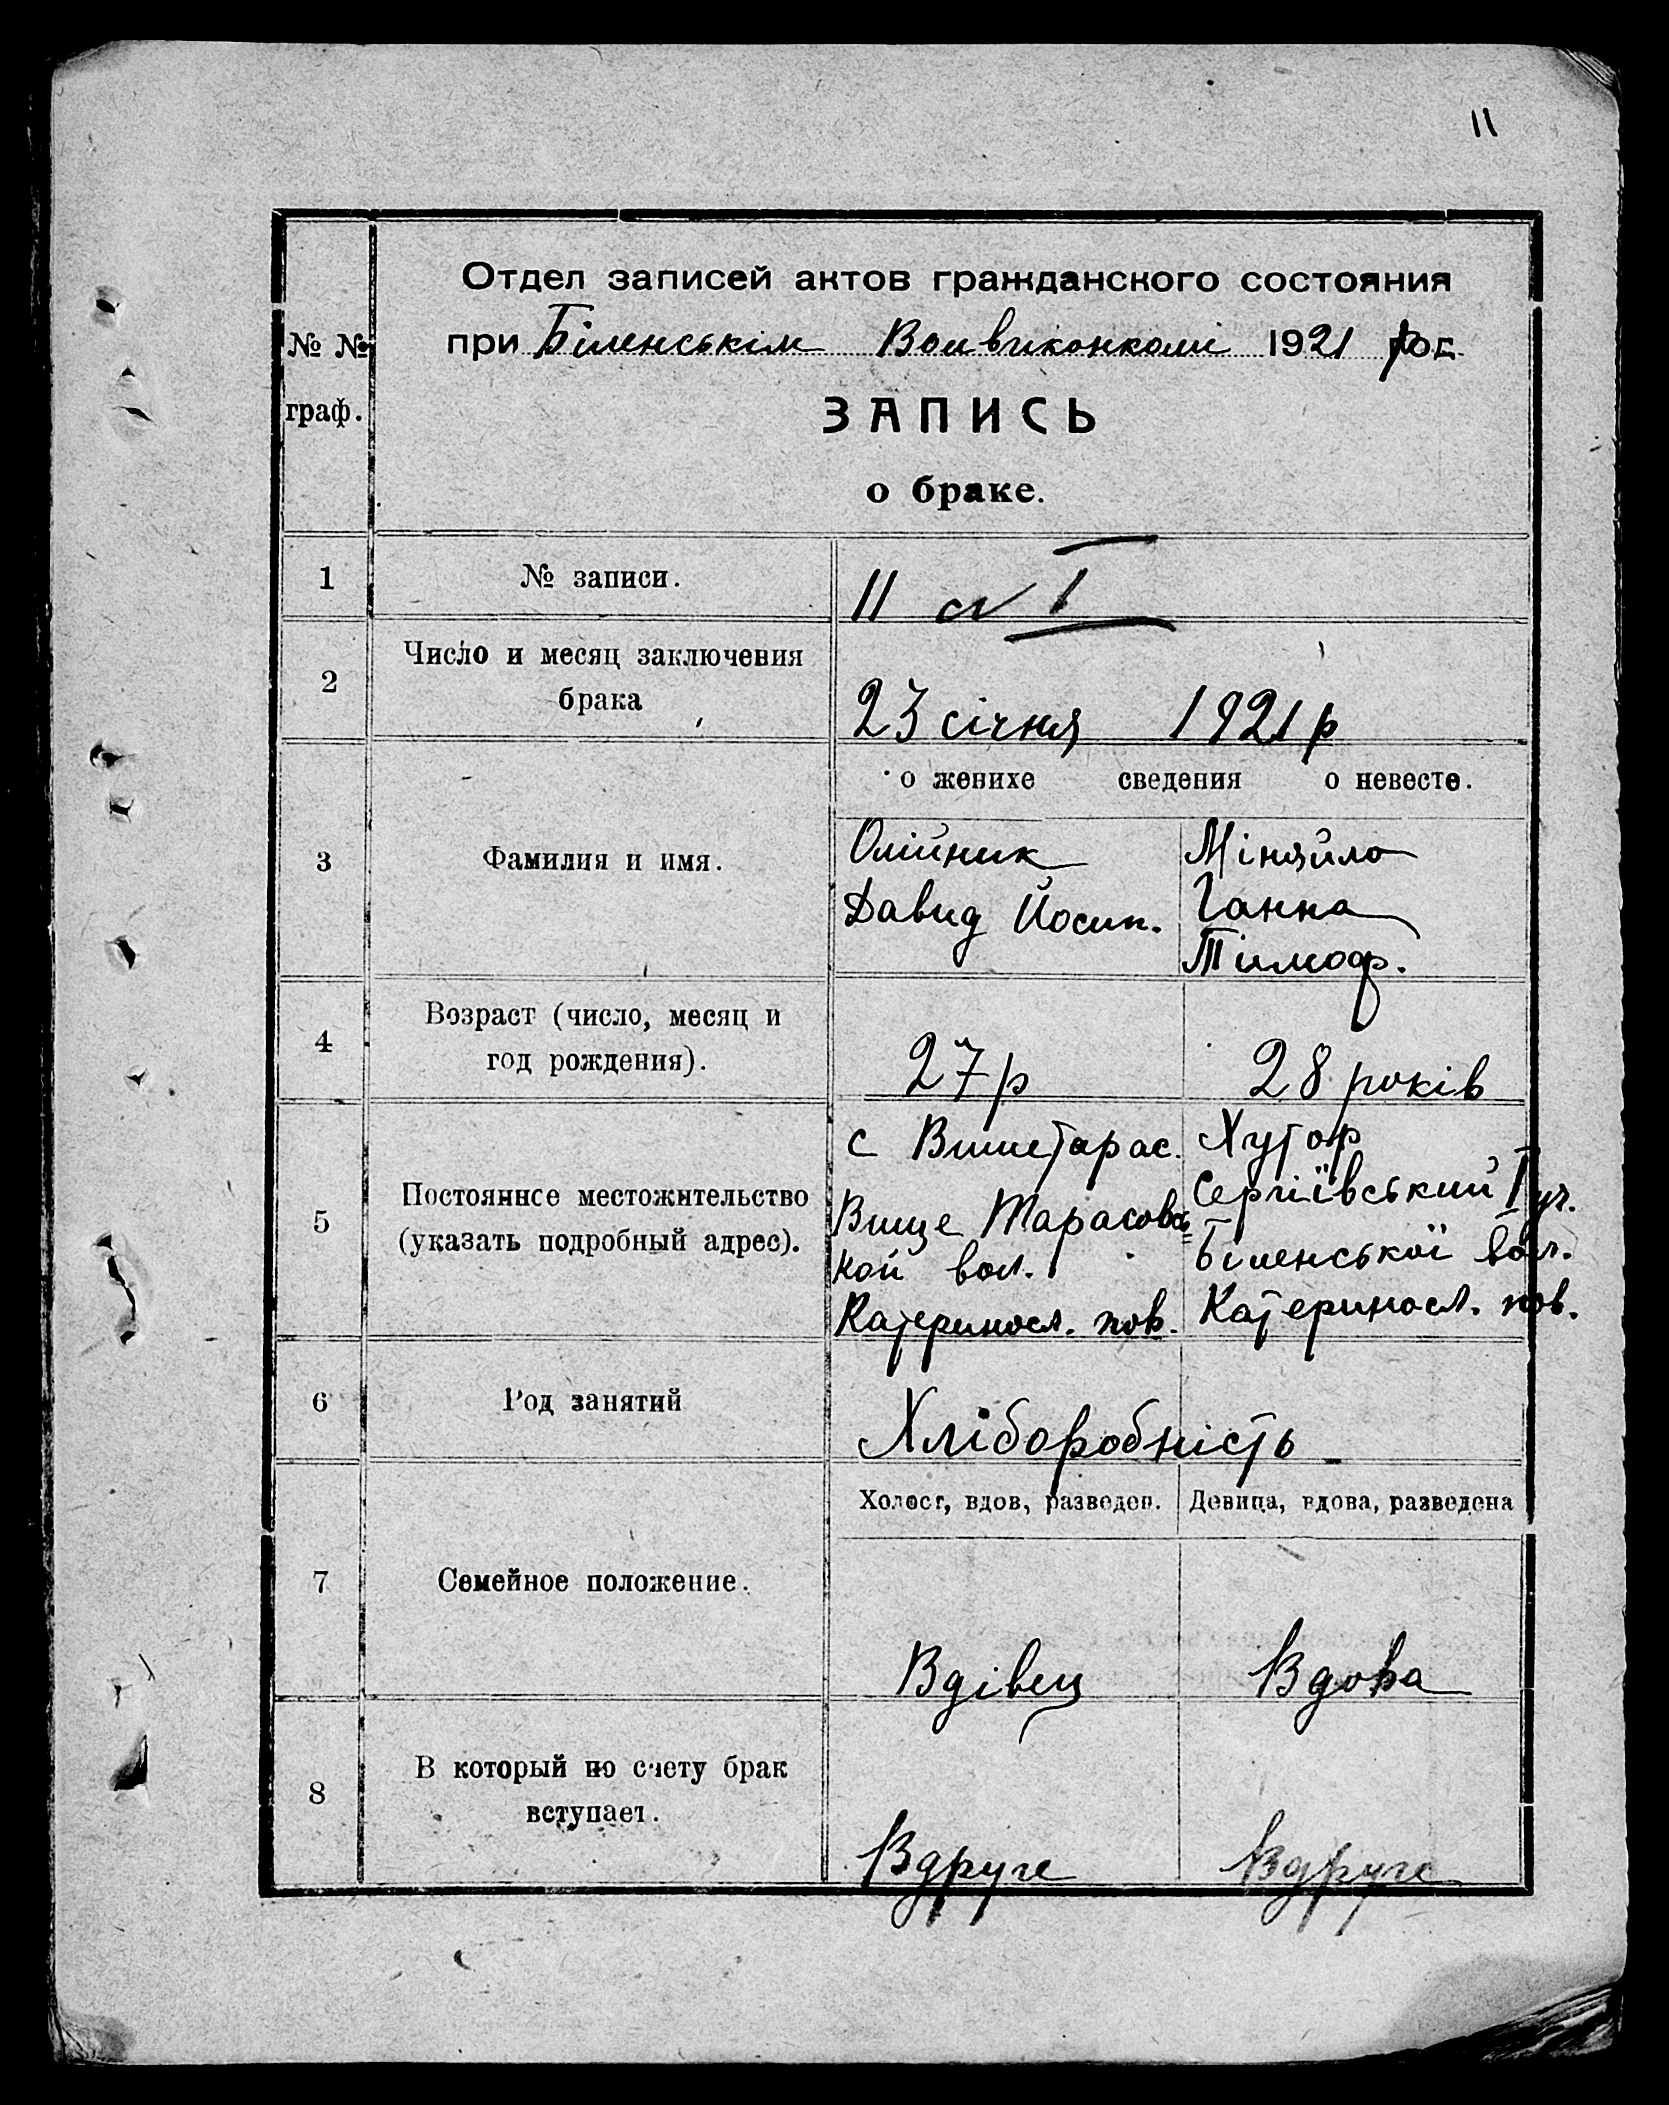 11
Отдел записей актов гражданского состояния
при Біленськім Волвиконкомі 1921 р
№ №
граф.
ЗАПИСЬ
о браке.
1 № записи. 11 I
2 Число и месяц заключения
брака
23 січня 1921 р
о женихе сведения о невесте.
3 Фамилия и имя.
Олійник
Давид Йосип.
Міняйло
Ганна
Тимоф.
4 Возраст (число, месяц и
год рождения).
27 р
28 років
5 Постоянное местожительство
(указать подробный адрес).
с Вишетарас.
Вище Тарасовсь=
кой вол.
Катериносл. пов.
Хутор
Сергіївський I уч.
Біленської вол.
Катериносл. пов.
6 Род занятий
Хліборобність
Холост, вдов, разведен. Девица, вдова, разведена
7 Семейное положение.
Вдівец
Вдова
8 В который по счету брак
вступает.
Вдруге
Вдруге